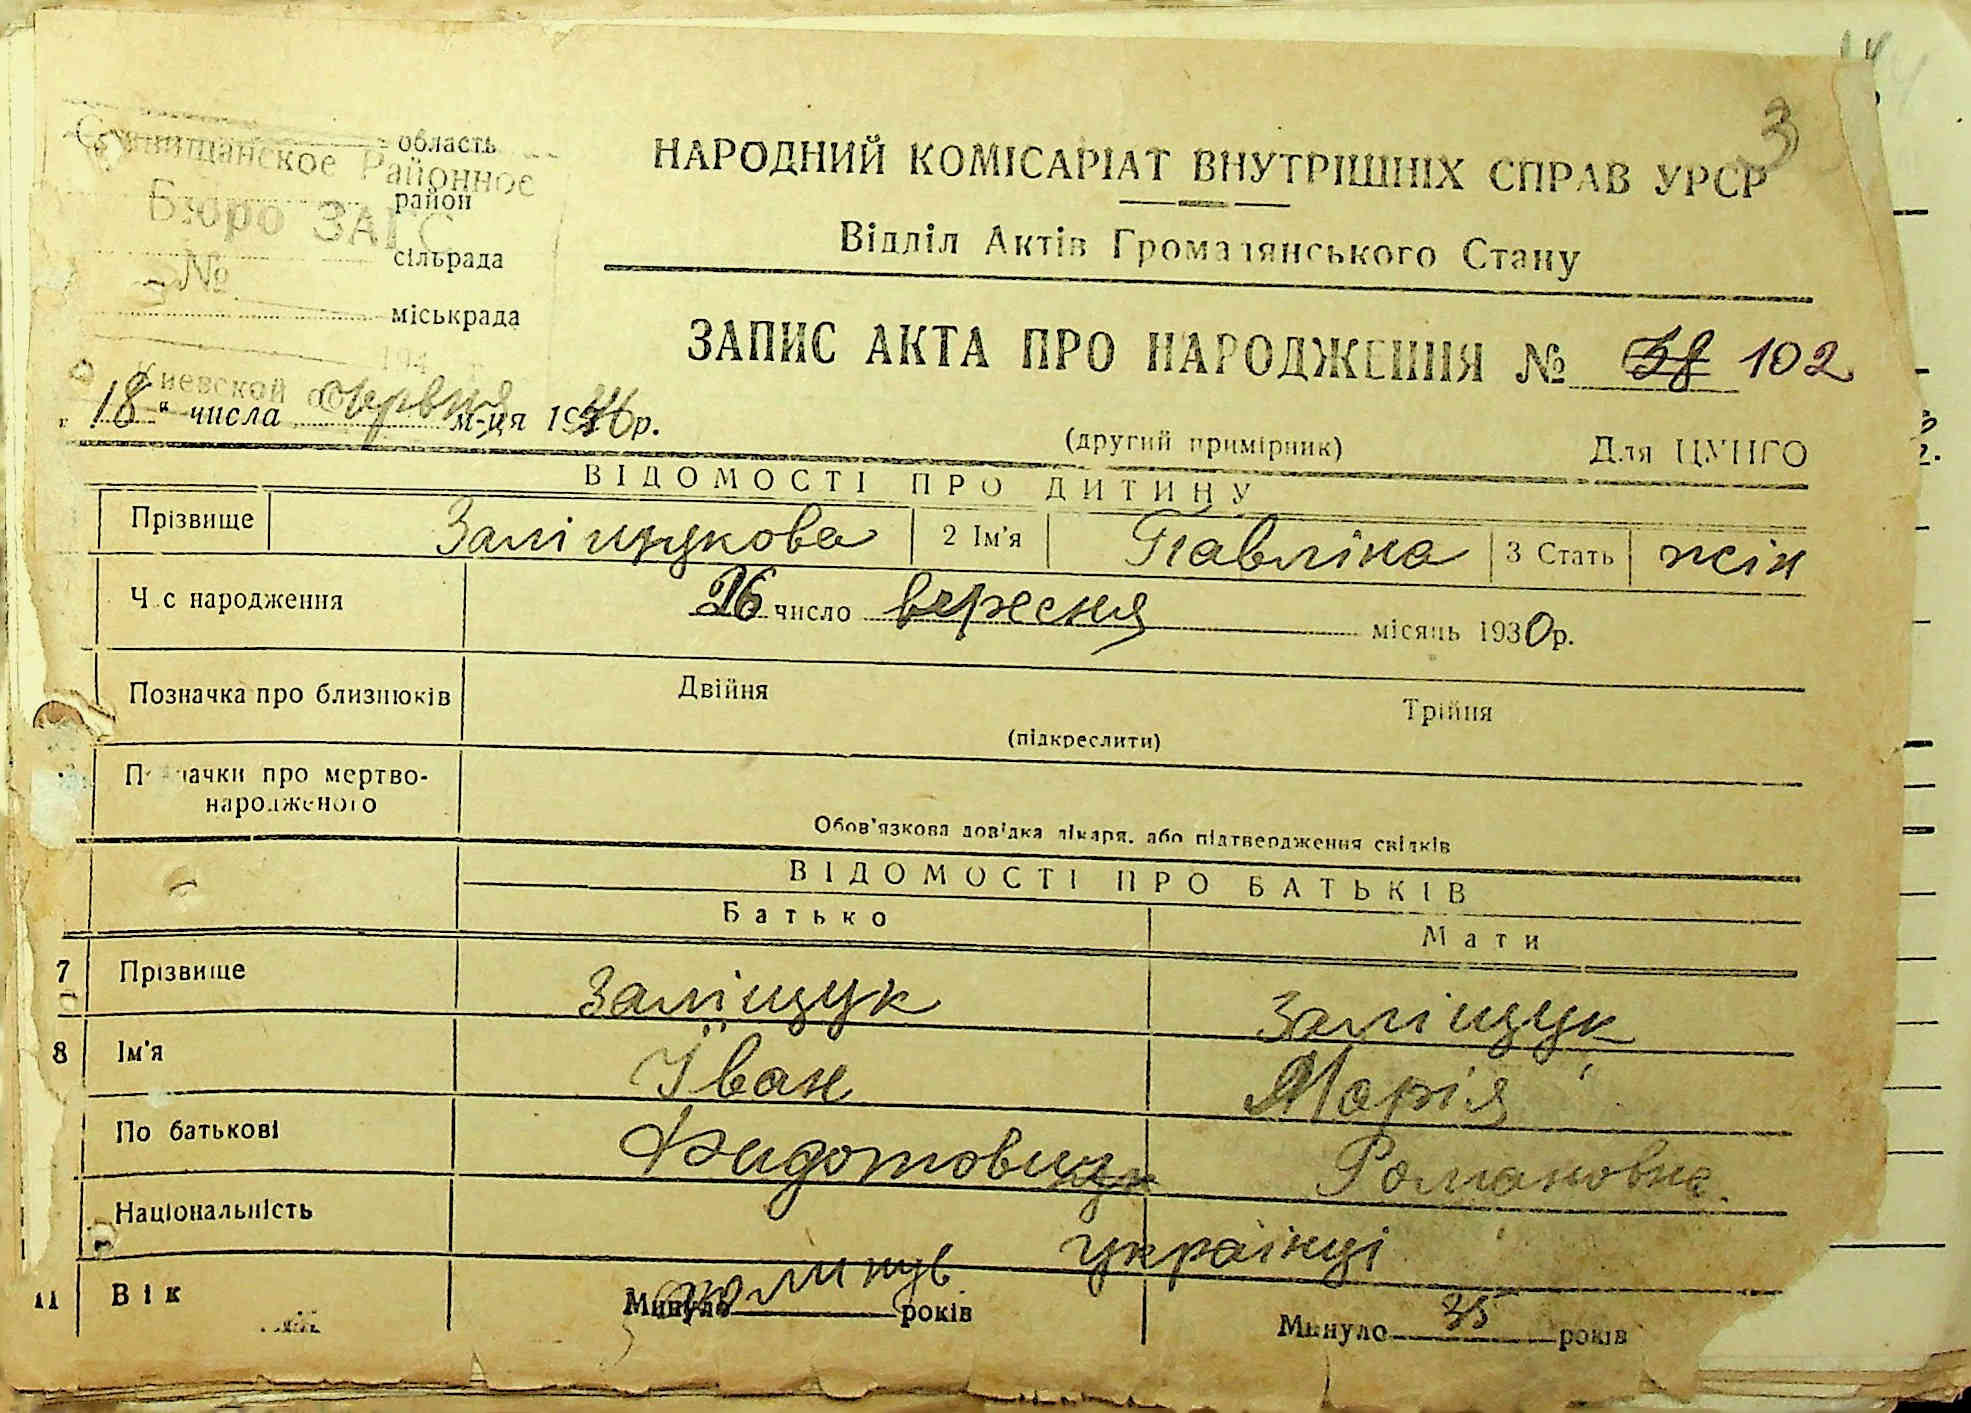 3
область
Ставищанское Районное
район
Бюро ЗАГС
сільрада
№
міськрада
194
Киевской
"18" числа червня м-ця 1946р.
НАРОДНИЙ КОМІСАРІАТ ВНУТРІШНІХ СПРАВ УРСР
Відділ Актів Громадянського Стану
ЗАПИС АКТА ПРО НАРОДЖЕННЯ № 38 102
(другий примірник) Для ЦУНГО
ВІДОМОСТІ ПРО ДИТИНУ
Прізвище Заліщукова 2 Ім'я Павліна 3 Стать жін
Час народження 26 число вересня місяць 1930р.
Позначка про близнюків Двійня Трійня
(підкреслити)
Позначки про мертво-
народженого
Обов'язкова довідка лікаря, або підтвердження свідків
ВІДОМОСТІ ПРО БАТЬКІВ
Батько Мати
7 Прізвище Заліщук Заліщук
8 Ім'я Їван Марія
По батькові Романовна
Національність українці
11 Вік Минуло років Минуло 35 років